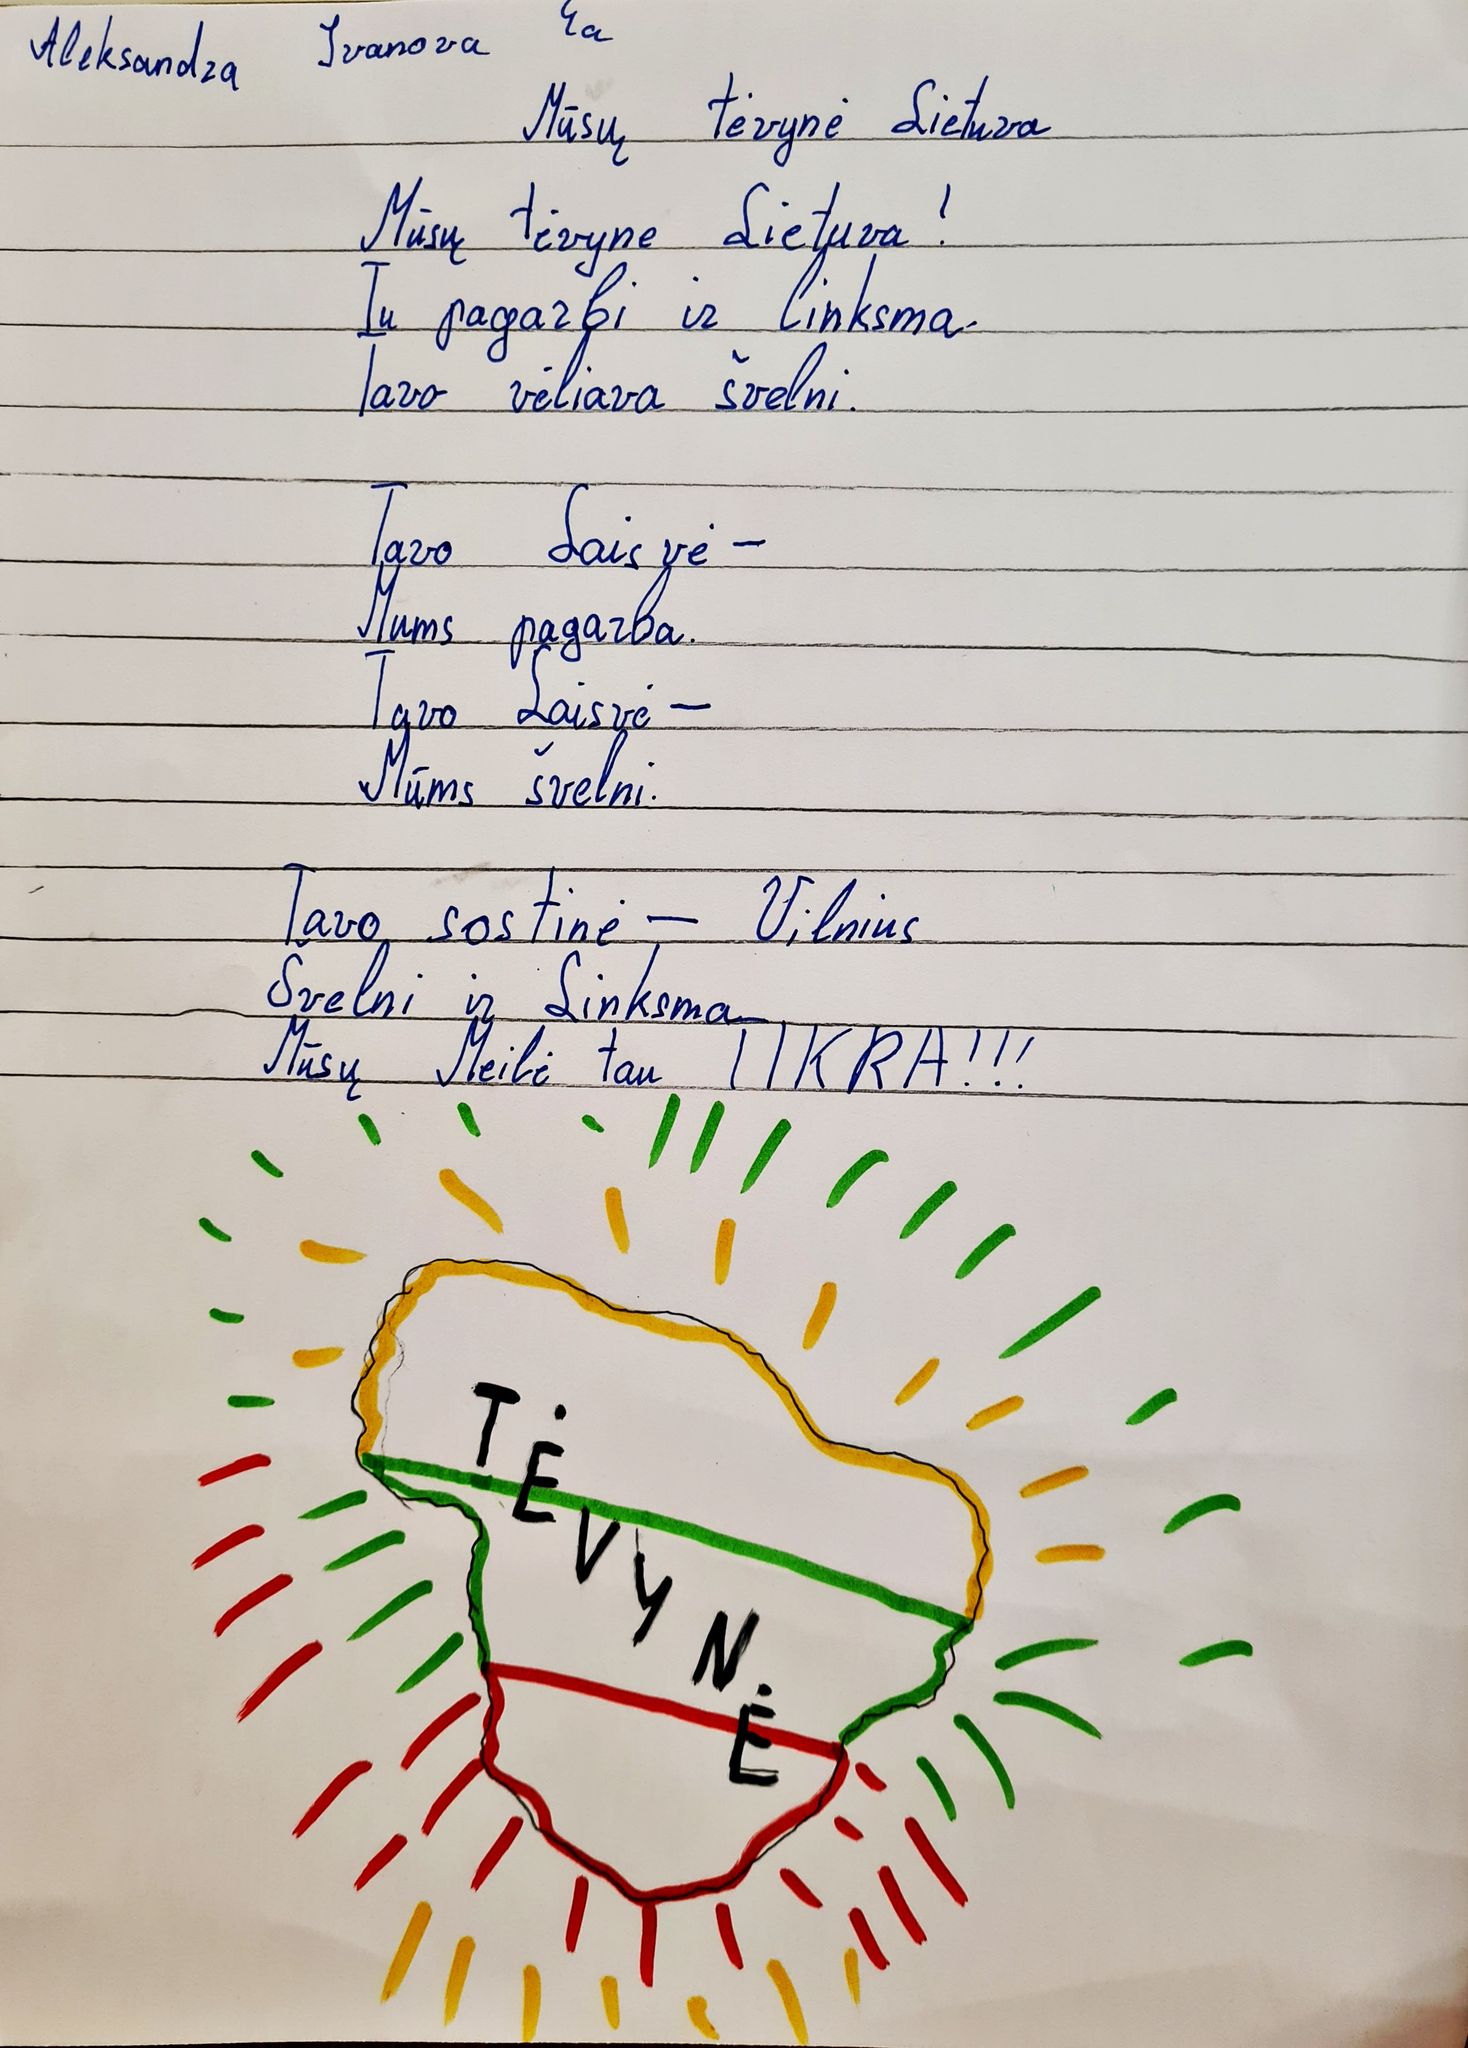 Aleksandra Ivanova
Mūsų tėvynė Lietuva
Mūsų tėvyne Lietuva!
Tu pagarbi ir linksma.
Tavo vėliava švelni.
Tavo Laisvė—
Mums pagarba.
Tavo Laisvė—
Mūms švelni.
Tavo sostinė— Vilnius
Švelni ir Linksma
Mūsų Meilė tau TIKRA!!!
TĖVYNĖ